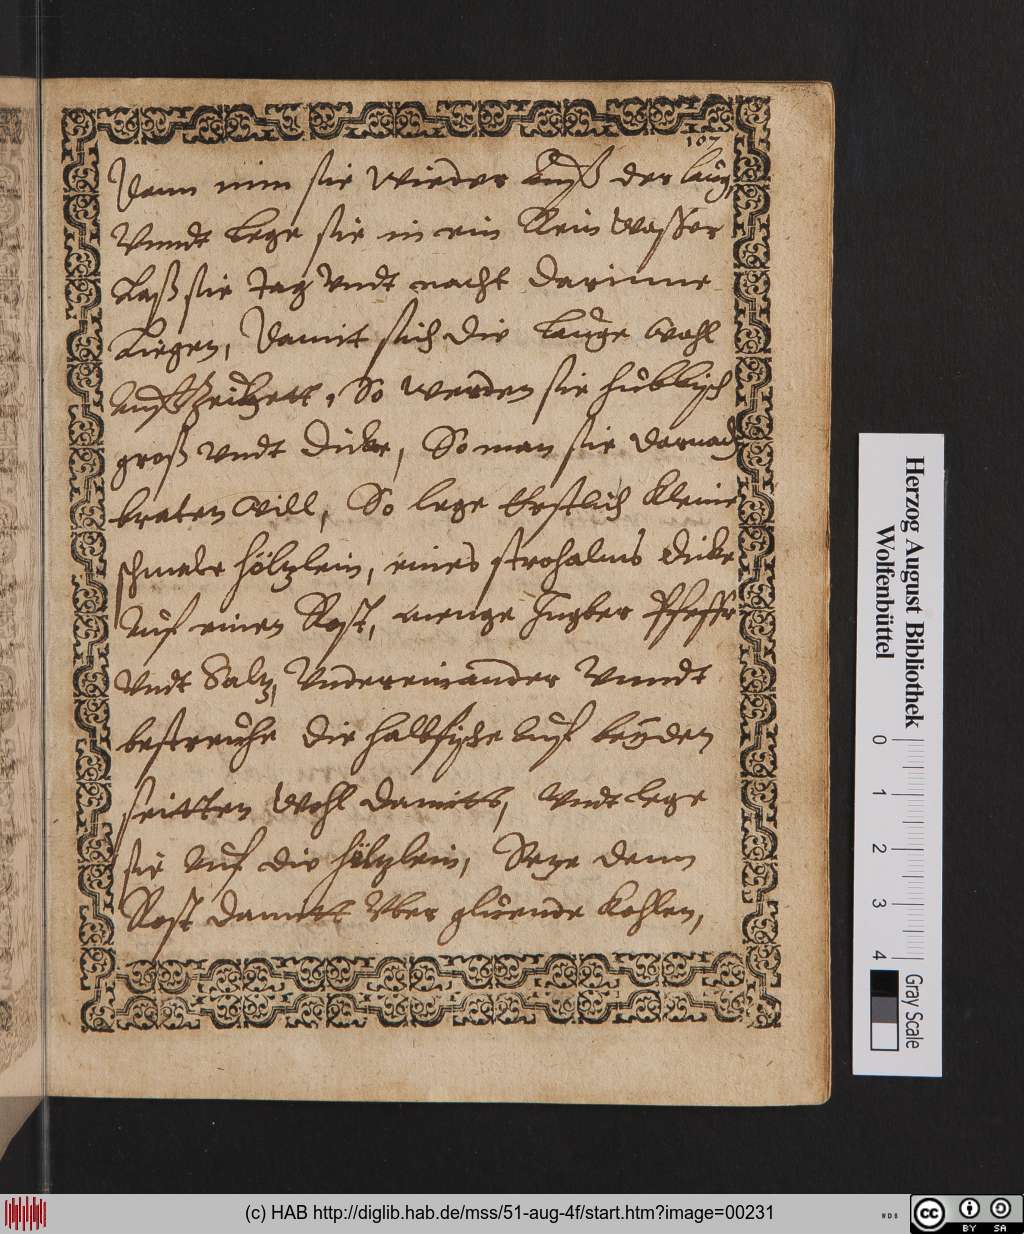 107
Dann nim sie wieder Auß der laug,
Vnndt lege sie in ein Rein Wasser
Laß sie tag Vndt nacht darinne
Liegen, Damit sich die lauge wohl
Auß Zeihett, So werden sie hüblisch
groß Vndt dicke, So man sie darnach
braten will, So lege Erstlich kleine
schmale höltzlein, eines strohalms dicke
Auf einen Rost, menge Ingber Pfeffr
Vndt Saltz, Vndereinander Vnndt
bestreuhe die halbfische Auf beyden
seitten Wohl damitt, Vndt lege
sie Auf die höltzlein, Setze denn
Rost damitt Vber gluende kohlen,
Herzog August Bibliothek
Wolfenbüttel
0 1 2 3 4
Gray Scale
(c) HAB http://diglib.hab.de/mss/51-aug-4f/start.htm?image=00231
WDB
cc BY SA